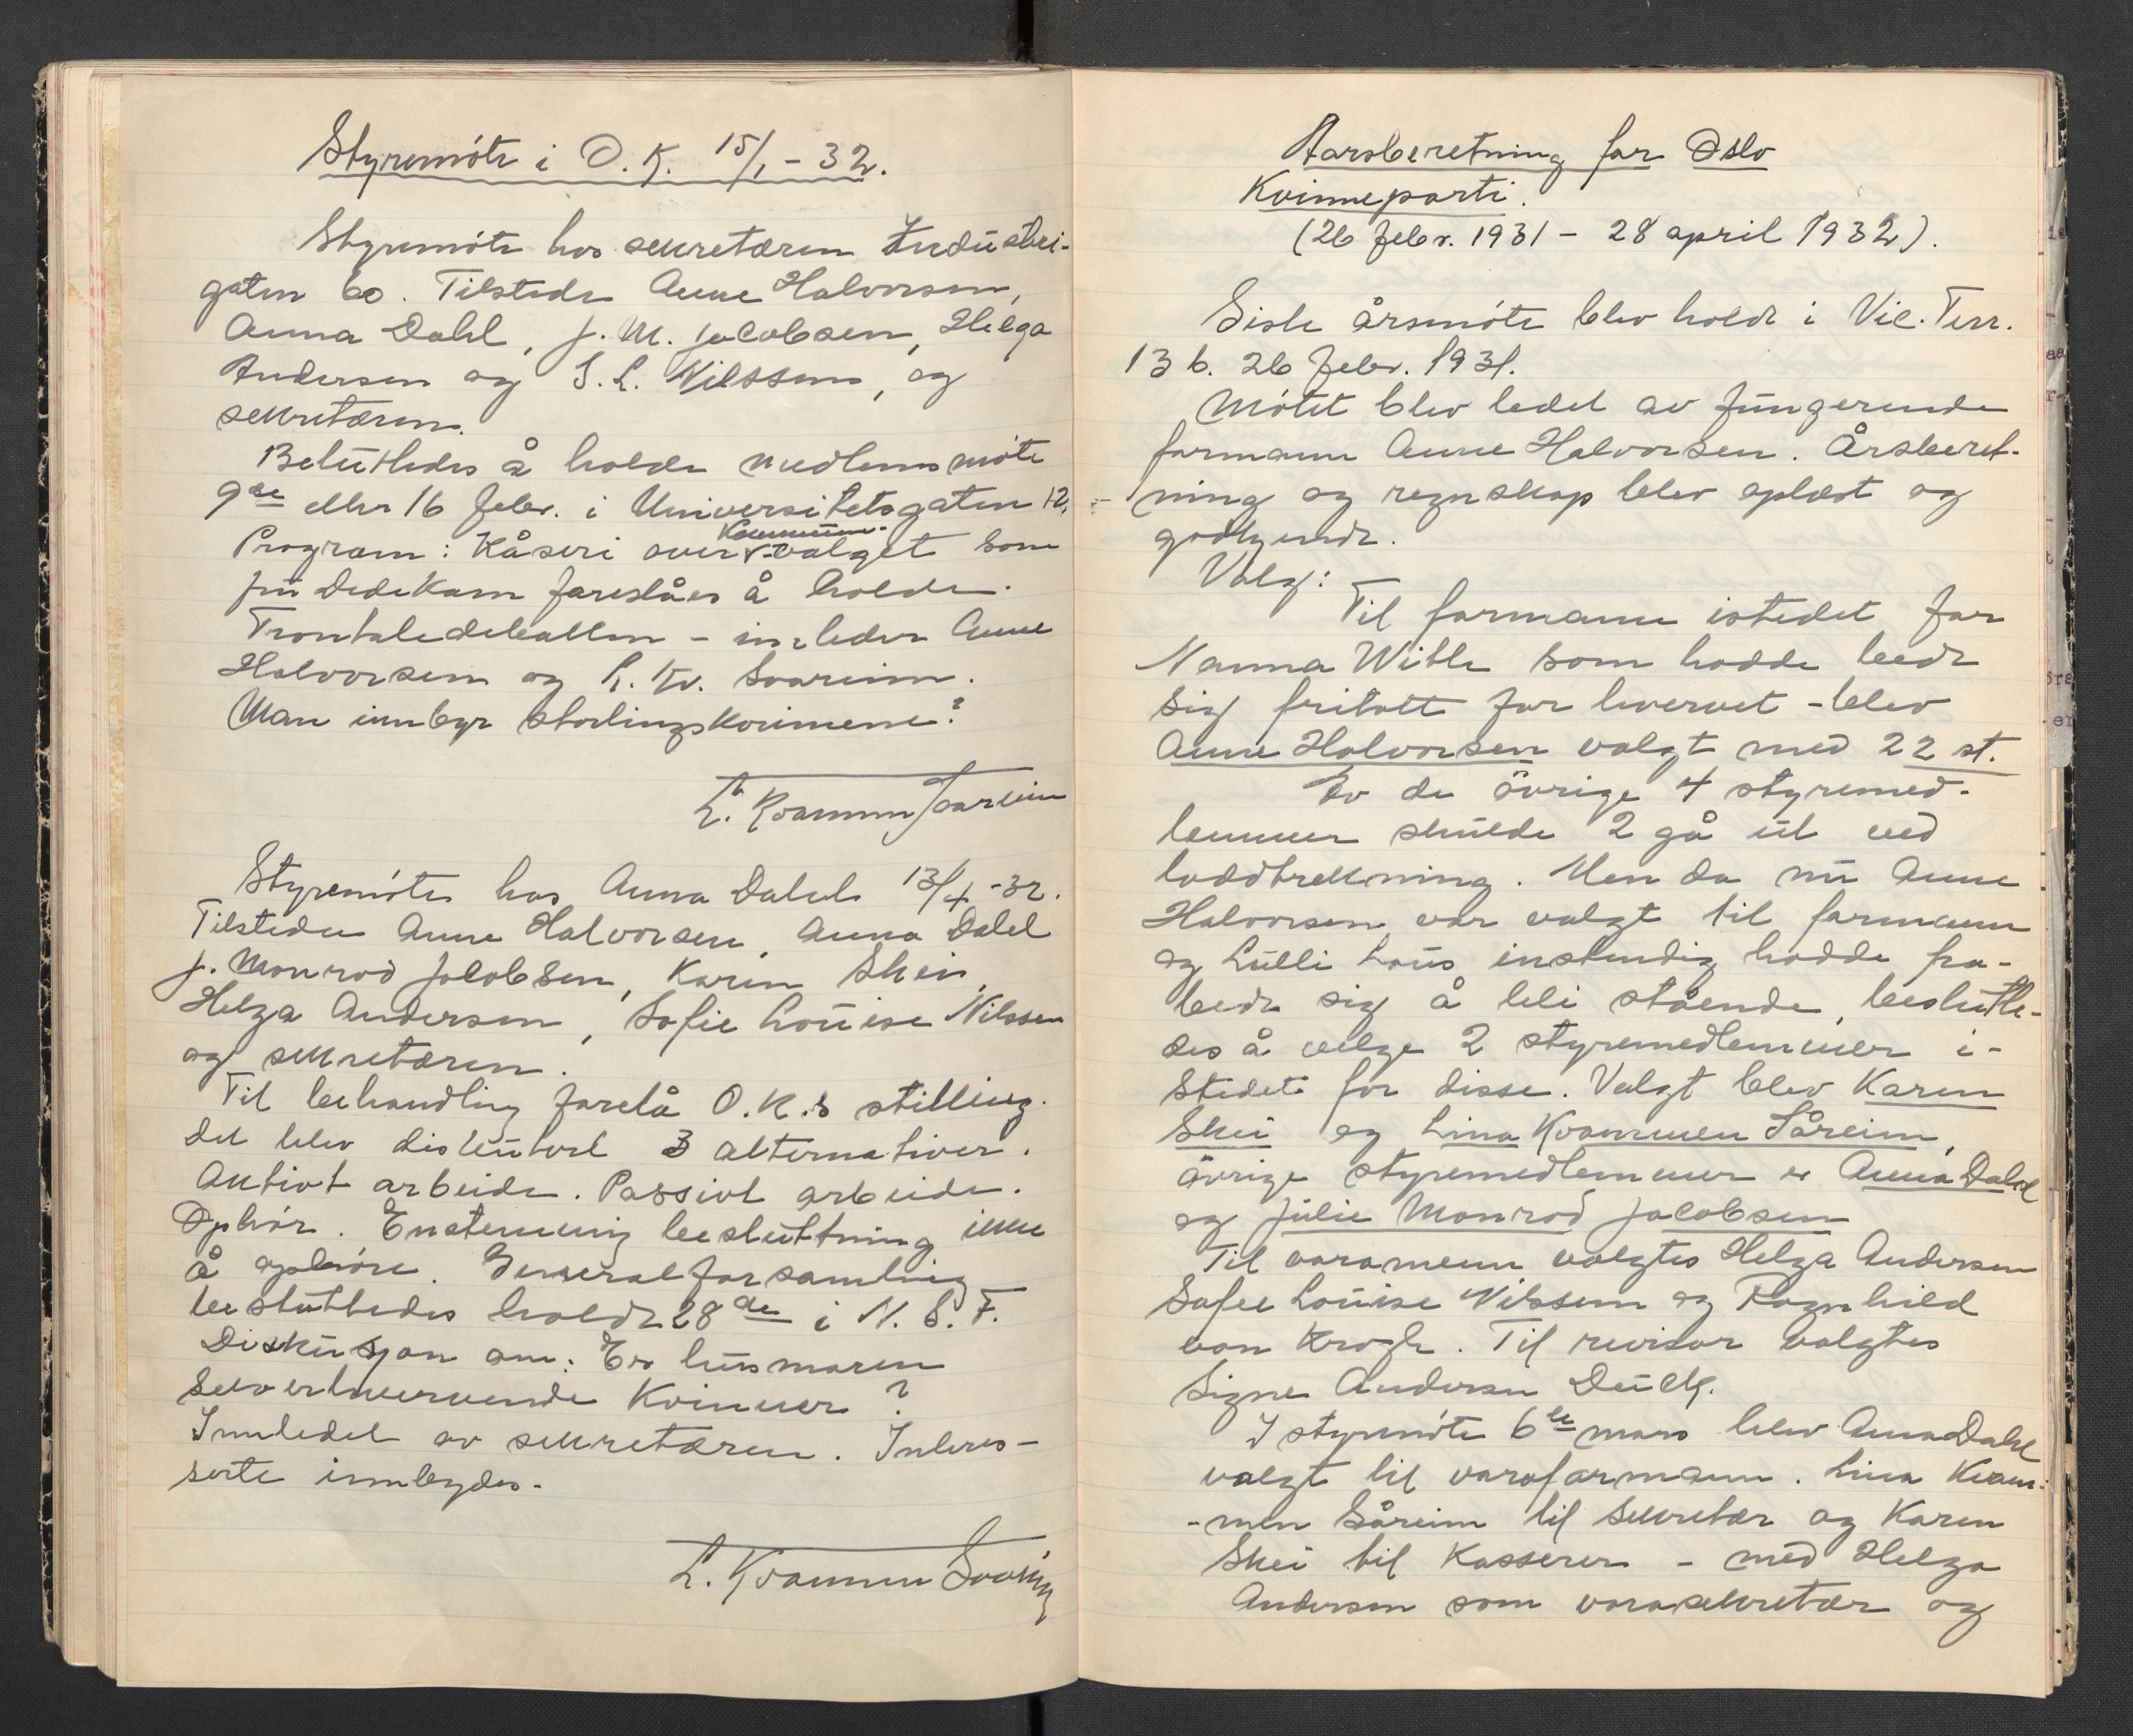 Styremöte i O. K. 15/1 - 32.
Styremöte hos sekretæren Industri-
gaten 60. Tilstede Anne Halvorsen,
Anna Dahl, J. M. Jacobsen, Helga
Andersen og S. L. Nilssen, og
sekretæren.
Beluttedes å holde medlemsmöte
9de eller 16 febr. i Universitetsgaten 12,
Kommune-
Program: Kåseri over valget som
fru Dedekam foreslåes å holde.
Trontaledebatten - innleder Anne
Halvorsen og L. Kv. Soareim.
Man innbyr stortingskvinnene?
L. Kvammen Soareim
Styremöte hos Anna Dahl 13/4 - 32.
Tilstede Anne Halvorsen, Anna Dahl
J. Monrod Jacobsen, Karin Skei,
Helga Andersen, Sofie Louise Nilssen
og sekretæren.
Til behandling forelå O.K.s stilling.
Det blev diskutert 3 alternativer.
Aktivt arbeide. Passivt arbeide.
Ophör. Enstemmig besluttning ikke
å ophöre. Generalforsamling
besluttedes holdt 28de i N. S. F.
Diskusjon om: Er husmoren
selverhvervende kvinner?
Innledet av sekretæren. Interes-
serte innbydes.
L. Kvammen Soareim
Aarsberetning for Oslo
Kvinneparti.
(26 febr. 1931 - 28 april 1932).
Siste årsmöte blev holdt i Vic. Terr.
13 b. 26 febr. 1931.
Mötet blev ledet av fungerende
formann Anne Halvorsen. Årsberet-
ning og regnskap blev oplæst og
godkjendt.
Valg:
Til formann istedet for
Nanna With som hadde bedt
sig fritatt for hvervet - blev
Anne Halvorsen valgt med 22 st.
Av de övrige 4 styremed-
lemmer skulde 2 gå ut ved
loddtrekning. Men da nu Anne
Halvorsen var valgt til formann
og Lulli Lous instendig hadde fra-
bedt sig å bli stående, beslutte-
des å velge 2 styremedlemmer i-
stedet for disse. Valgt blev Karen
Skei og Lina Kvammen Såreim,
övrige styremedlemmer er Anna Dahl
og Julie Monrod Jacobsen
Til varamenn valgtes Helga Andersen
Sofie Louise Nilssen og Ragnhild
von Krogh. Til revisor valgtes
Signe Andersen Duch.
I styremöte 6te mars blev Anna Dahl
valgt til varaformann. Lina Kvam-
-men Såreim til sekretær og Karen
Skei til Kasserer - med Helga
Andersen som varasekretær og